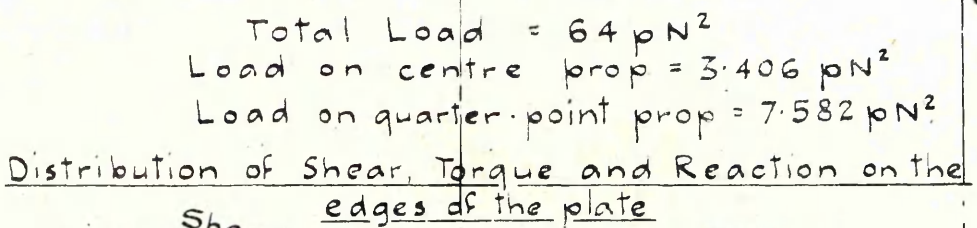 Total Load = 64 pN²
Load on centre prop = 3·406 pN²
Load on quarter·point prop = 7·582 pN²
Distribution of Shear, Torque and Reaction on the
edges of the plate